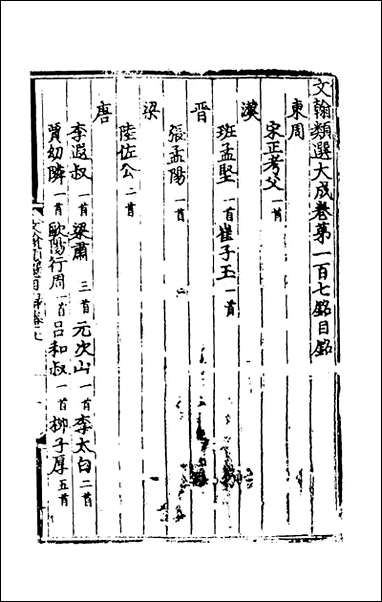 文翰類選大成卷第一百七銘目銘
東周
宋正考父一首
漢
班孟堅一首崔子玉一首
晉
張孟陽一首
梁
陸佐公二首
唐
李遐叔一首梁肅三首元次山一首李太白二首
賈幼隣一首歐陽行周一首呂和叔一首柳子厚五首